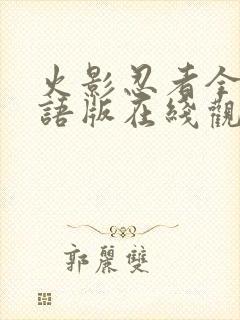 火影忍者全
語版在綫觀
郭麗雙